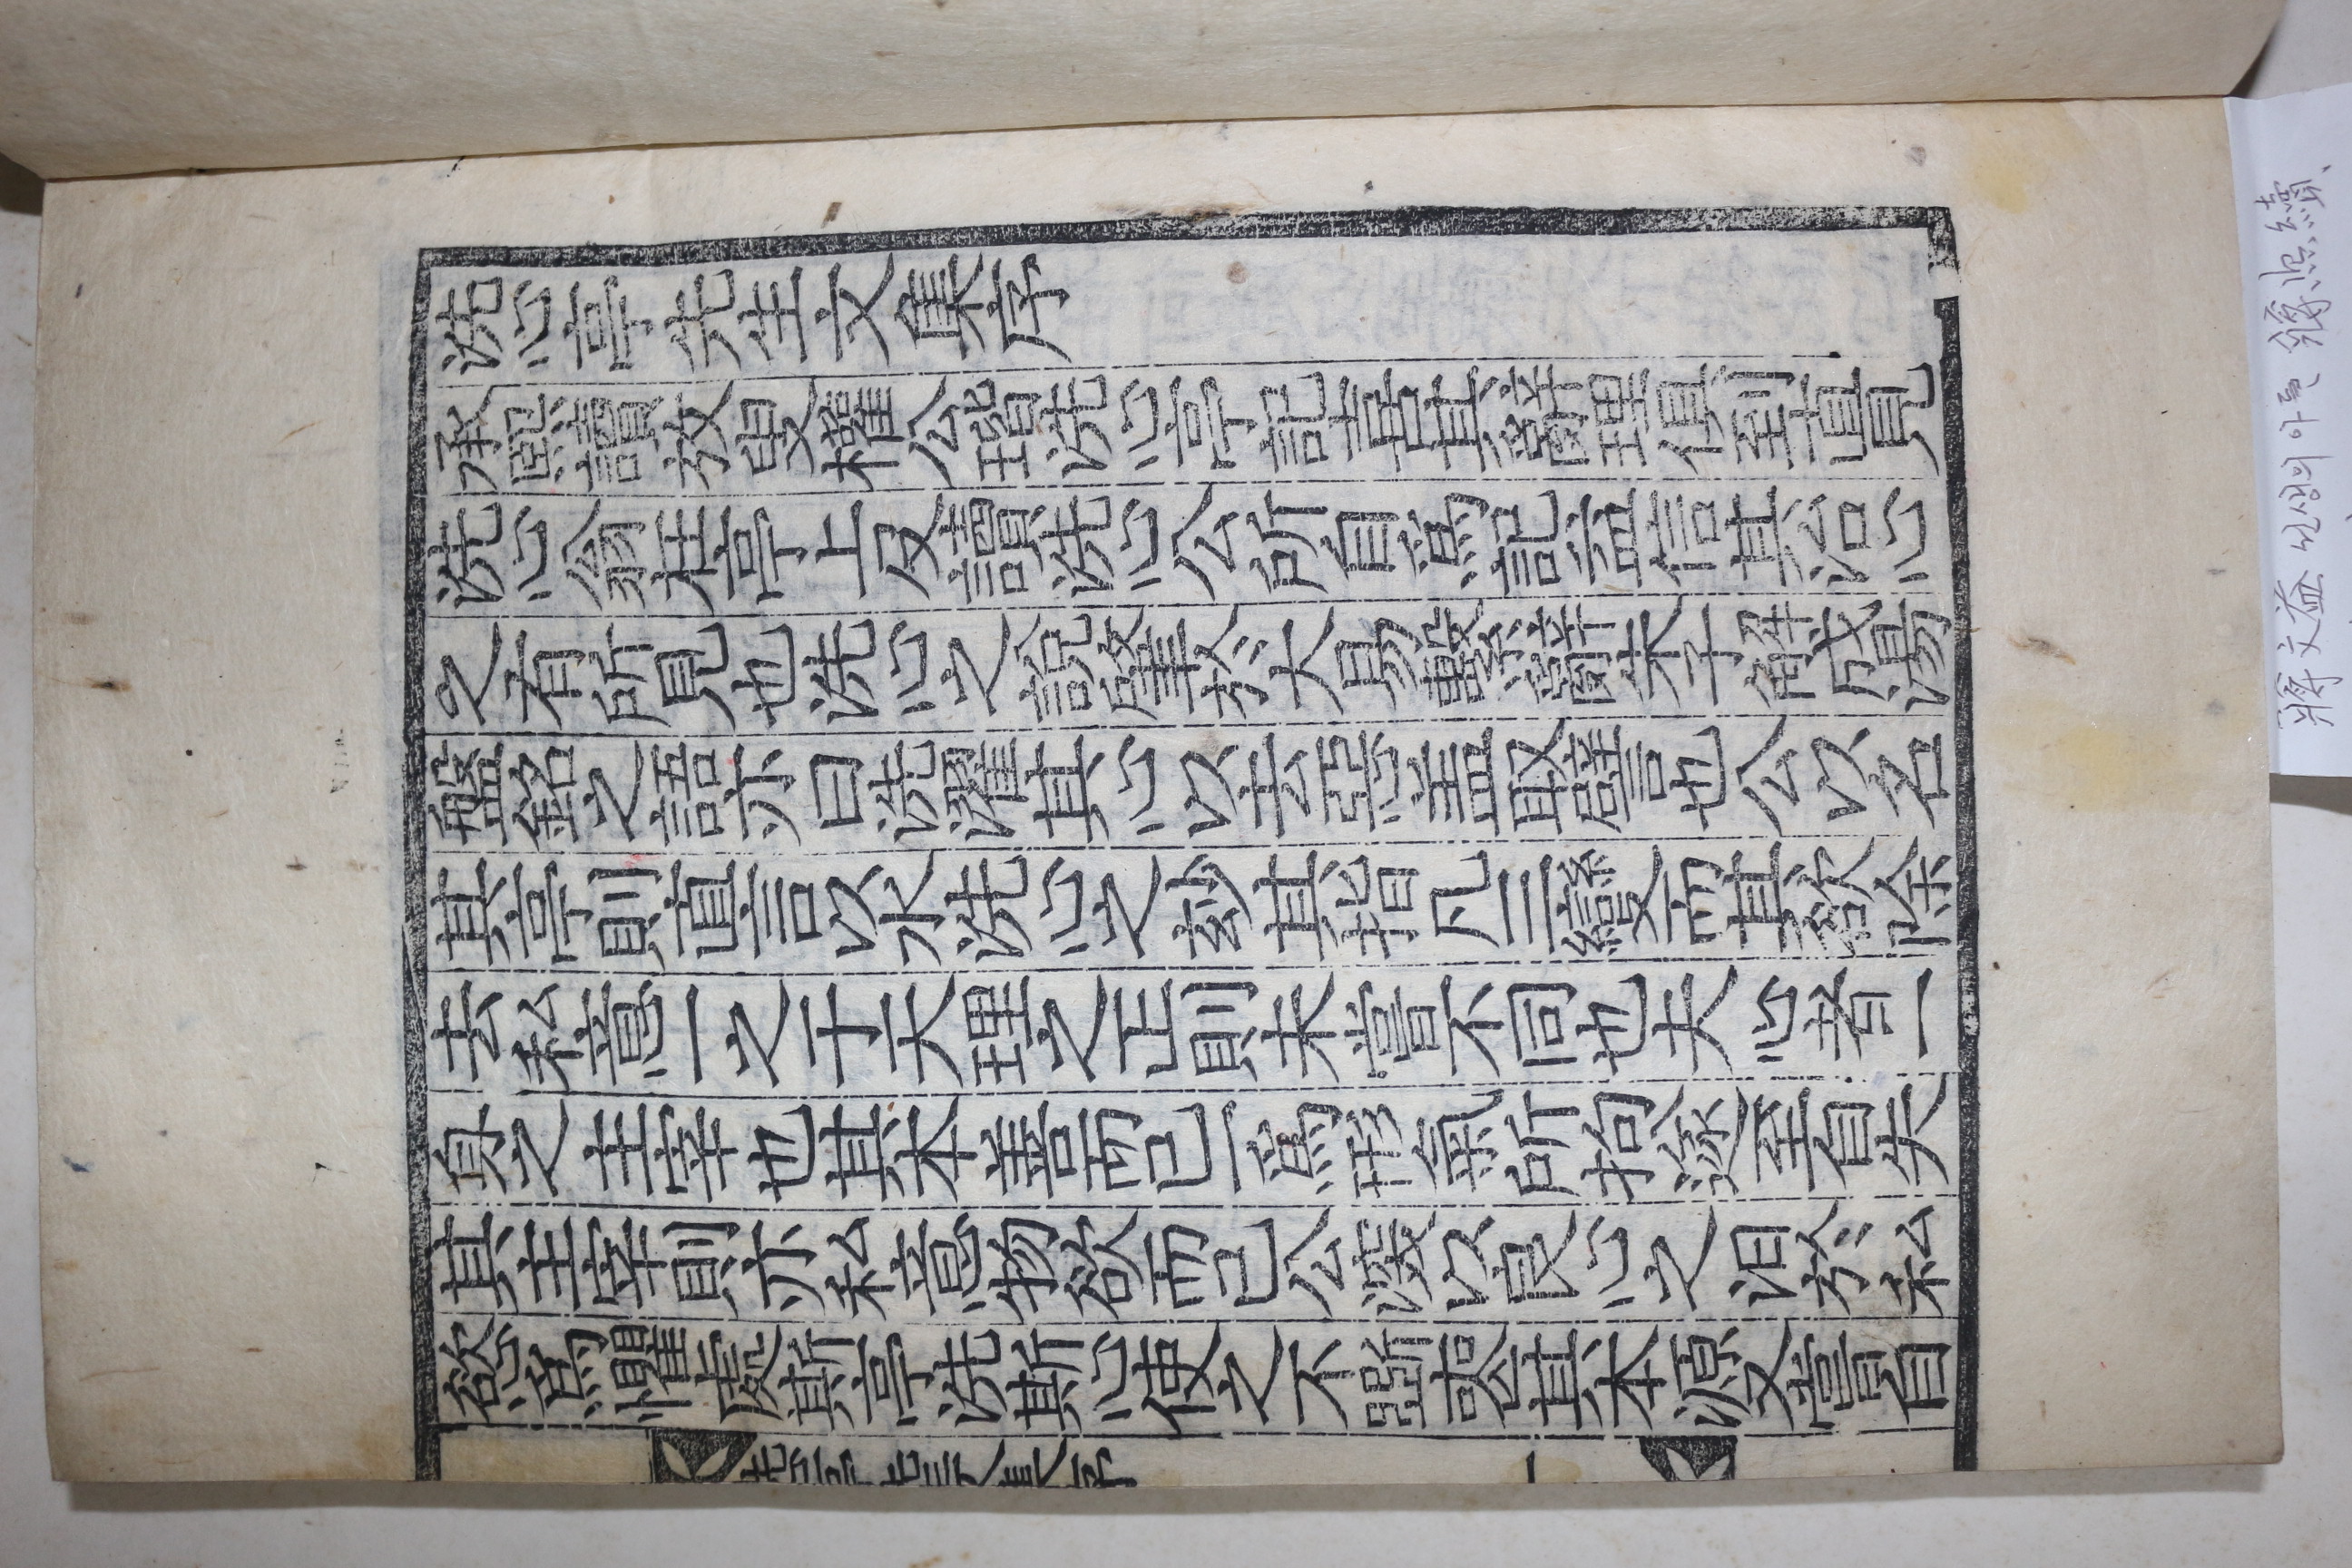 洗心亭先生文集序
承熙讀放叟權公瑎洗心亭記喜其辭理俱到直見
洗心翁在亭上及讀洗心公所自爲記益信其治心
之有所見也洗心之說肇於大易繫辭朱子解成湯
盤銘之語亦曰洗濯其心以去惡盖取譬也公以名
其亭則直言以水洗心之玅其指凡三變而其欲除
去私意一之于天理之正則未嘗不同也夫心者一
身之主宰也其本善而已一爲形氣所拘遂至自失
其主宰則亦私意物欲而已公深以良心之汩於私
慾爲懼處斯亭洗斯心使之不斲喪其本源又嘗自
一
蔣文益 선생의 아들 蔣熙績